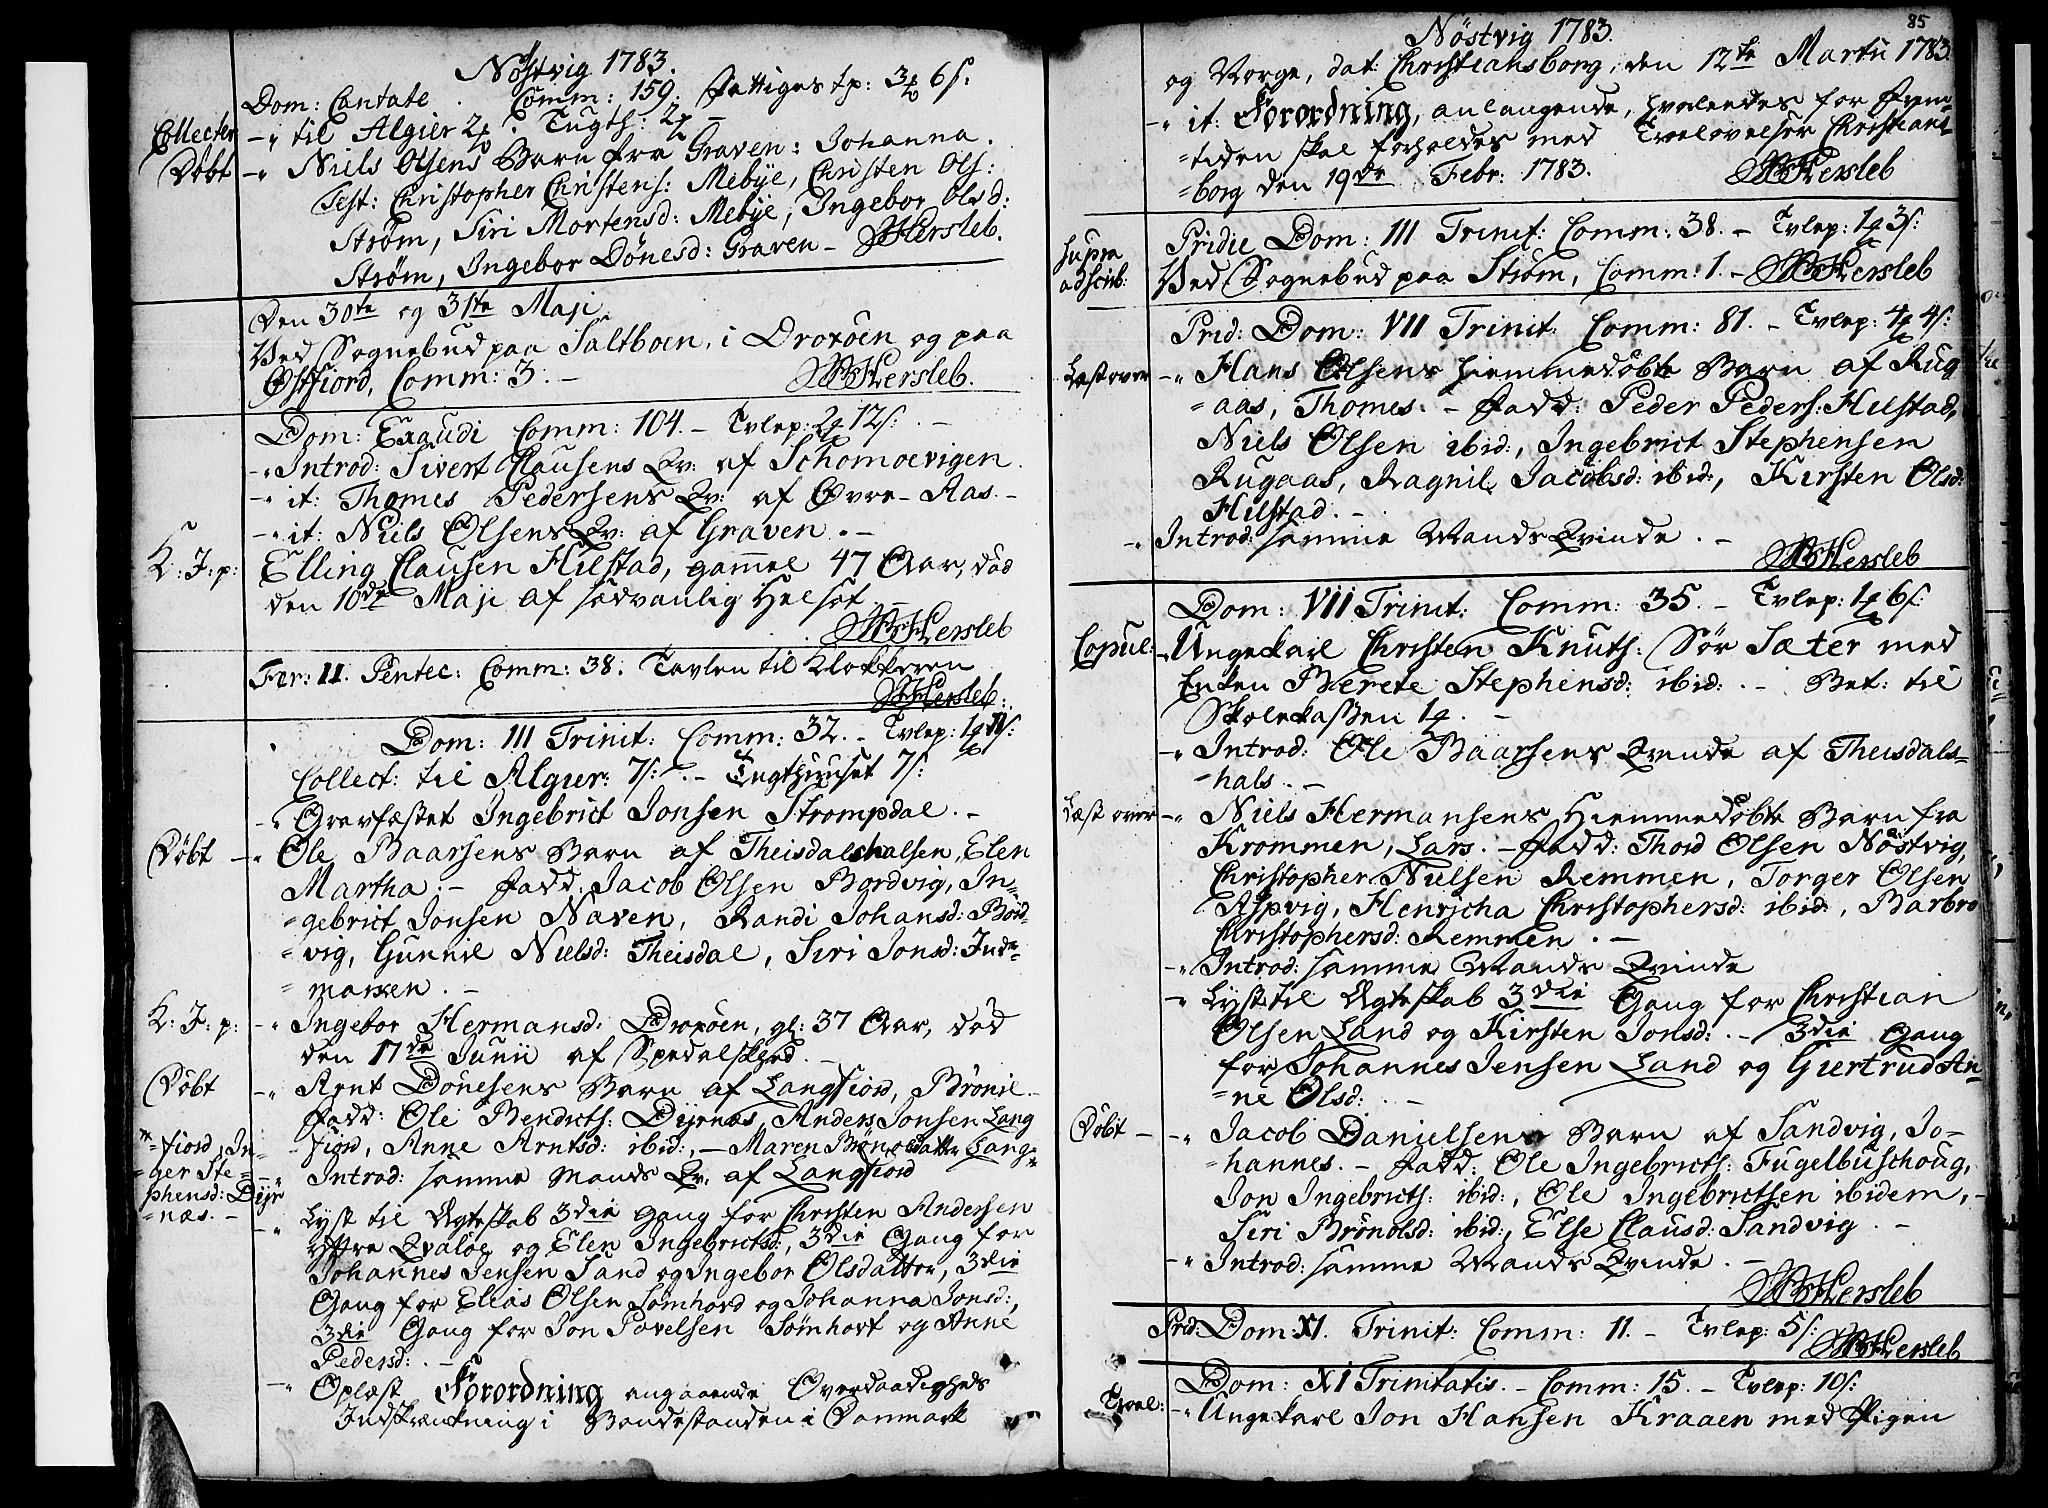 Nöstvig 1783.
Dom: Cantate. Comm: 159. Fattiges tp: 3 6 s:
Collecter -" til Algier 2 . Tugth: 2 -
Döbt -" Niels Olsens Barn fra Graven: Johanna.
Test: Christopher Christens: Mebÿe, Christen Ols:
Strøm, Siri Mortensd: Mebÿe, Ingebor Olsd:
Strøm, Ingebor Dönesd: Graven - Hersleb.
Den 30te og 31te Maji
Ved Sognebud paa Saltboen, i Droxöen og paa
Østfiord, Comm: 3. - Hersleb.
Dom: Exaudi Comm: 104. - Tvlep: 2 12 s: -
-" Introd: Sivert Clausens Qv: af Schomoevigen.
-" it: Thomes Pedersens Qv: af Øvre-Aas. -
-" it: Niels Olsens Qv: af Graven. -
K: J: p: Elling Clausen Hilstad, gammel 47 Aar, död
den 10de Maji af sædvanlig Helsot -
Hersleb
Fer: II. Pentec: Comm: 38. Tavlen til Klokkeren
Hersleb.
Dom: III Trinit: Comm: 32. - Tvlep: 1
Collect: til Algier: 7 s: - Tugthuuset 7 s:
-" Gravfæstet Ingebrict Jonsen Strompdal. -
Döbt -" Ole Baarsens Barn af Theisdalshalsen, Elen
Martha. - Fadd: Jacob Olsen Bordvig, In-
=gebrict Jonsen Naven, Randi Johansd: Bord-
=vig, Gunnil Nielsd: Theisdal, Siri Jonsd: Ind-
=marken. -
K: J: p: -" Ingebor Hermansd: Droxöen, gl: 37 Aar, död
den 17de Junii af Spedalskhed. -
Döbt -" Arnt Dönesens Barn af Langfiord, Brönil. -
Fadd: Ole Bendicts: Dÿrnes, Anders Jonsen Lang
fiord, Anne Arntsd: ibid:, - Maren Brönesdatter Lang-
=fiord, In-
=ger Ste-
phensd: Dÿr
=næs. -
-" Introd: samme Mands Qv: af Langfiord
-" Lyst til Ægteskab 3die Gang for Christen Andersen
Yttre Qvaløe og Elen Ingebrictsd:, 3die Gang for
Johannes Jensen Sand og Ingebor Olsdatter, 3die
Gang for Elias Olsen Sömhovd og Johanna Jonsd:,
3die Gang for Jon Povelsen Sömhovt og Anne
Pedersd: . -
-" Oplæst Forordning angaaende Overdaadigheds
Indskrænkning i Bondestanden i Danmark
85
Nöstvig 1783.
og Norge, dat: Christiansborg, den 12te Martii 1783
-" it: Forordning, anlangende, hvorledes for Frem-
=tiden skal forholdes med Trolovelser Christians-
=borg den 19de Febr: 1783. Hersleb
supra
adscrib:
Pridie Dom: III Trinit: Comm: 38. - Tvlep: 1 3 s:
Ved Sognebud paa Strøm, Comm: 1. - Hersleb
Prid: Dom: VII Trinit: Comm: 81. - Tvlep: 4 4 s:
Læst over -" Hans Olsens hiemmedöbte Barn af Rug-
=aas, Thomes. - Fadd: Peder Peders: Hilstad,
Niels Olsen ibid:, Ingebrict Stephensen
Rugaas, Ragnil Jacobsd: ibid:, Kirsten Olsd:
Hilstad. -
-" Introd: samme Mands Qvinde. -
Hersleb
Dom: VII Trinit: Comm: 35. - Tvlep: 1 6 s:
Copul: -" Ungekarl Christen Knuts: Sör Sæter med
Enken Berete Stephensd: ibid: . - Bet: til
Skolekassen 1 . -
-" Introd: Ole Baarsens Qvinde af Theisdals-
=hals. -
Læst over -" Niels Hermansens Hiemmedöbte Barn fra
Krommen, Lars. - Fadd: Thord Olsen Nöstvig,
Christopher Nielsen Remmen, Torger Olsen
Aspvig, Henricha Christophersd: ibid:, Barbro
Christophersd: Remmen. -
-" Introd: samme Mands Qvinde
-" Lyst til Ægteskab 3die Gang for Christian
Olsen Land og Kirsten Jonsd: . - 3die Gang
for Johannes Jensen Land og Giertrud An-
=ne Olsd: . -
Döbt - -" Jacob Danielsens Barn af Sandvig, Jo-
=hannes. - Fadd: Ole Ingebricts: Fugelbuschoug,
Jon Ingebricts: ibid:, Ole Ingebrictsen ibidem, -
Siri Brönolsd: ibid:, Else Clausd: Sandvig. -
-" Introd: samme Mands Qvinde. -
Hersleb
Prid: Dom: XI. Trinit: Comm: 11. - Tvlep: 5 s:
Hersleb
Dom: XI Trinitatis. - Comm: 15. - Tvlep: 10 s:
Trol: -" Ungekarl Jon Hansen Kraaen med Pigen